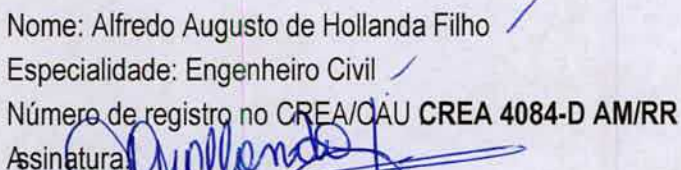 Nome: Alfredo Augusto de Hollanda Filho
Especialidade: Engenheiro Civil
Número de registro no CREA/CAU CREA 4084-D AM/RR
Assinatura: